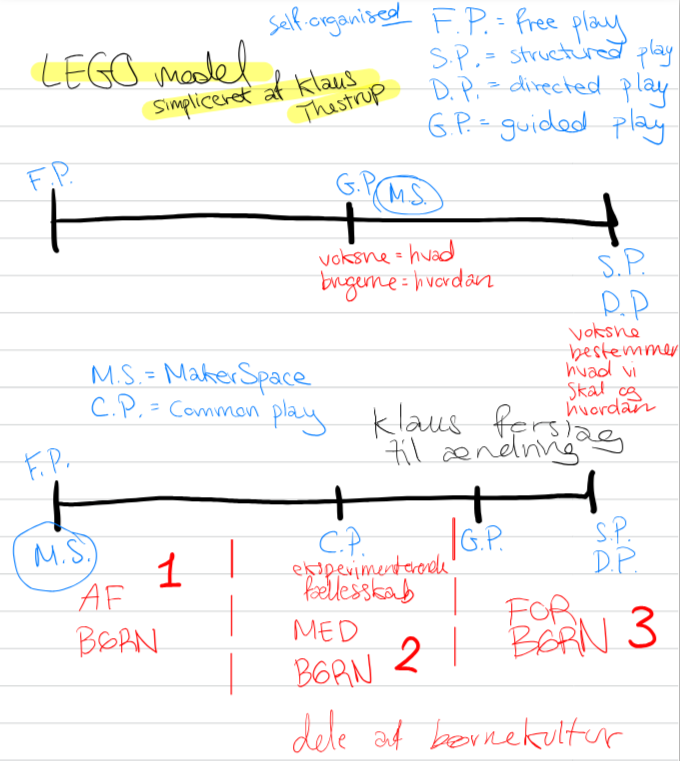 self-organised
F.P. = free play
S.P. = structured play
D.P. = directed play
G.P. = guided play
LEGO model
simpliceret af Klaus
Thestrup
F.P.
G.P. M.S.
voksne = hvad
brugerne = hvordan
S.P.
D.P
voksne
bestemmer
hvad vi
skal og
hvordan
M.S. = MakerSpace
C.P. = Common play
Klaus forslag
til ændring
F.P.
M.S.
C.P.
G.P.
S.P.
D.P.
1
AF
BØRN
eksperimenterende
fællesskab
MED
BØRN 2
FOR
BØRN 3
dele af børnekultur